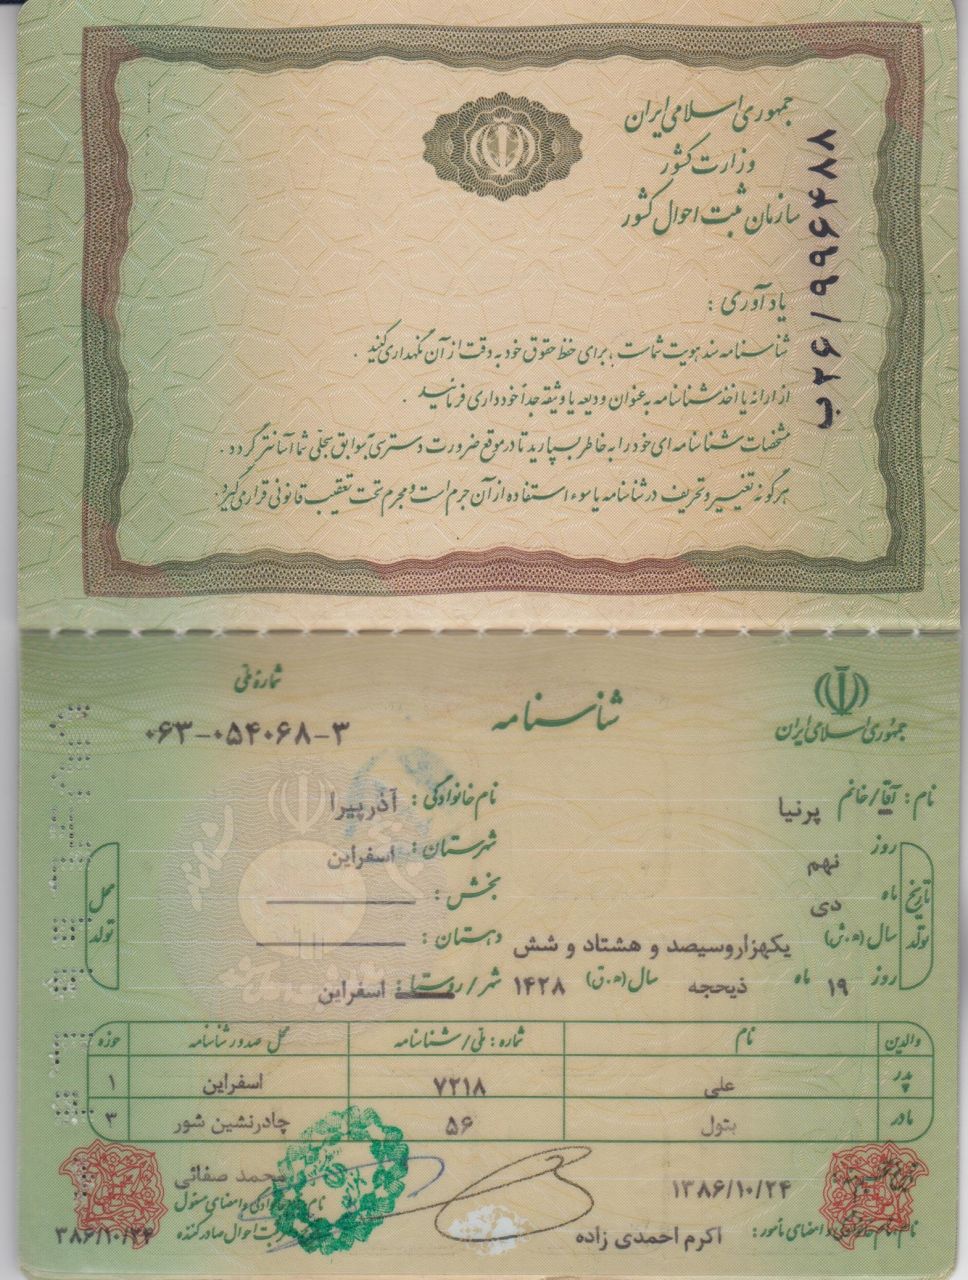 جمهوری اسلامی ایران
وزارت کشور
سازمان ثبت احوال کشور
ب۲۶/۹۹۶۴۷۸۷
یادآوری :
شناسنامه سند هویت شماست ، برای حفظ حقوق خود به دقت از آن نگهداری کنید .
از ارائه یا اخذ شناسنامه به عنوان ودیعه یا وثیقه جداً خودداری فرمائید .
مشخصات شناسنامه ای خود را به خاطر بسپارید تا در موقع ضرورت دسترسی به سوابق سجلی شما آسانتر گردد .
هرگونه تغییر و تحریف در شناسنامه یا سوء استفاده از آن جرم است و مجرم تحت تعقیب قانونی قرار می گیرد .
جمهوری اسلامی ایران
شناسنامه
شماره ملی
۰۶۳-۰۵۴۰۶۸-۳
نام : آقا/خانم پرنیا نام خانوادگی : آذرپیرا
تاریخ تولد
روز نهم شهرستان : اسفراین
ماه دی بخش :
سال (ه.ش) یکهزاروسیصد و هشتاد و شش دهستان :
روز ۱۹ ماه ذیحجه سال (ه.ق) ۱۴۲۸ شهر/روستا : اسفراین
محل تولد
والدین نام شماره : ملی/شناسنامه محل صدور شناسنامه حوزه
پدر علی ۷۲۱۸ اسفراین ۱
مادر بتول ۵۶ چادرنشین شور ۳
۱۳۸۶/۱۰/۲۴ محمد صفائی
نام و نام خانوادگی و امضای مأمور : اکرم احمدی زاده
نام خانوادگی و امضای مسئول
ثبت احوال صادر کننده
۱۳۸۶/۱۰/۲۴